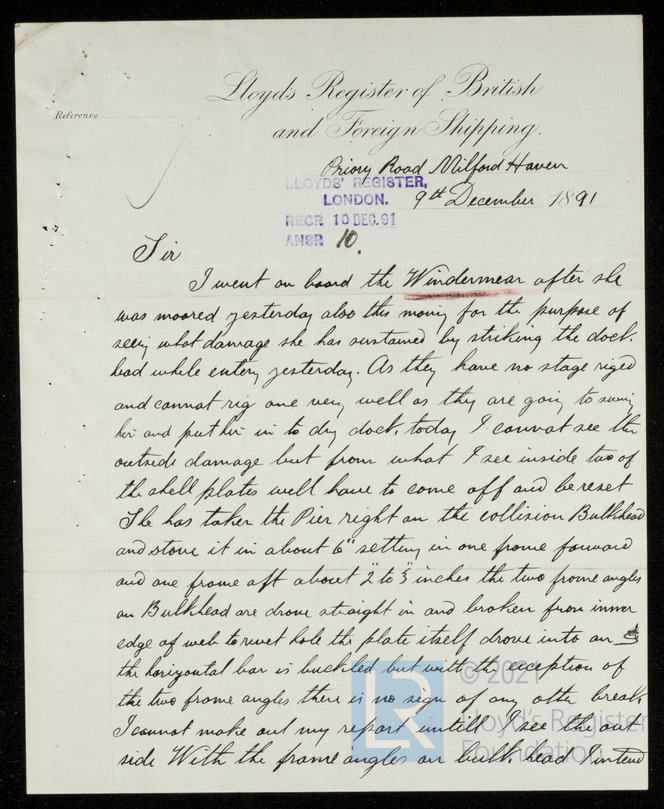 Lloyd's Register of British
and Foreign Shipping.
Reference
Priory Road Milford Haven
LLOYDS' REGISTER,
LONDON.
9th December 1891
RECD 10 DEC. 91
ANSR 10.
Sir
I went on board the Windermear after she
was moored yesterday also this moring for the purpose of
seeing what damage she has sustained by striking the dock
head while entery yesterday. As they have no stage riged
and cannot rig one very well as they are going to swing
her and put her in to dry dock today I cannot see the
outside damage but from what I see inside two of
the shell plates will have to come off and be reset
She has taken the Pier right on the collision Bulkhead
and stove it in about 6" setting in one frame forward
and one frame aft about "2 to "3 inches the two frame angles
on Bulkhead are drove straight in and broken from inner
edge of web to rivet hole the plate itself drove into an
the horizontal bar is buckled but with the exception of
the two frame angles there is no sign of any other break
I cannot make out my report untill I see the out
side With the frame angles on bulk head I intend
© 2021
Lloyd's Register
Foundation
LR